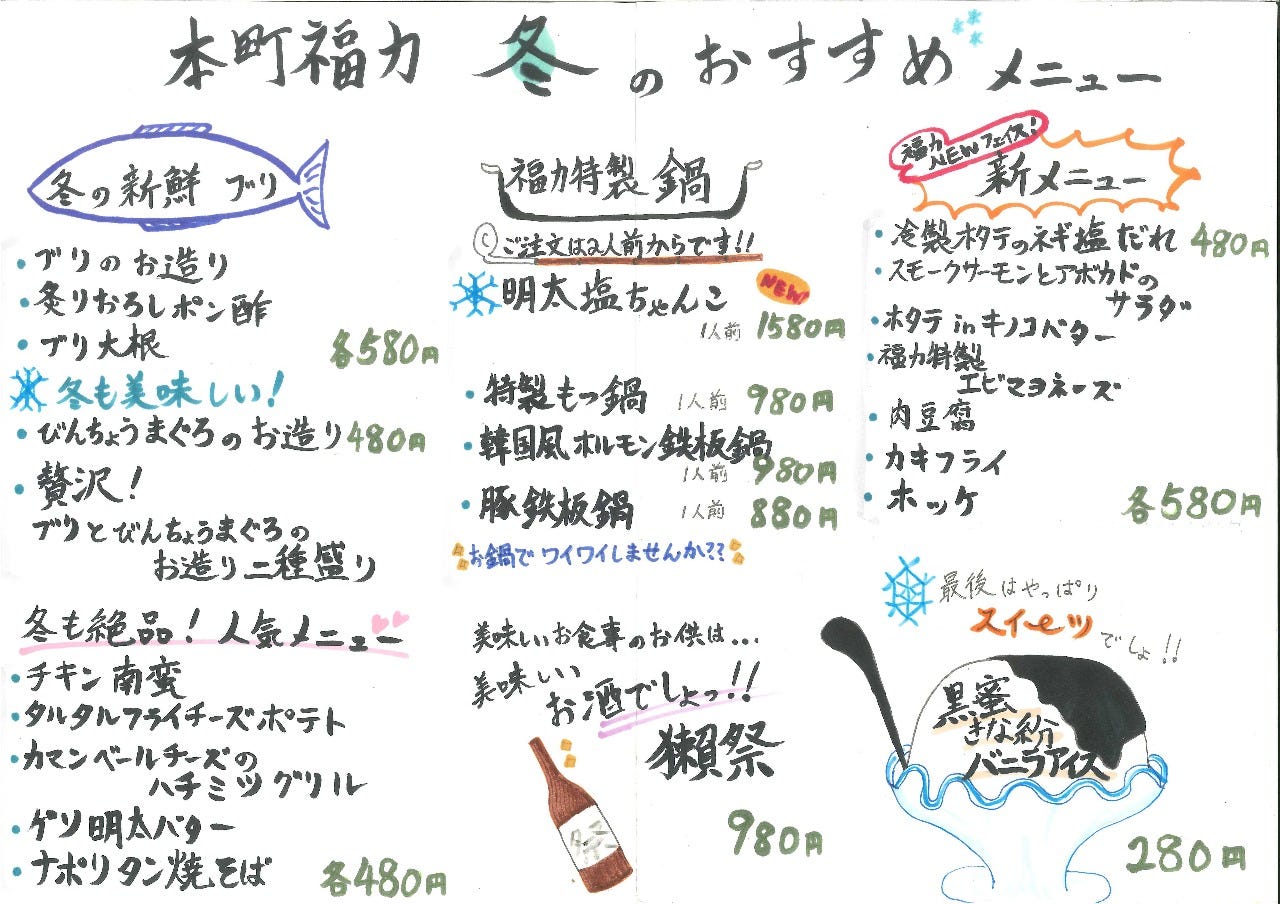 本町福力 冬のおすすめメニュー
冬の新鮮 ブリ
・ブリのお造り
・炙りおろしポン酢
・ブリ大根
各580円
冬も美味しい!
・びんちょうまぐろのお造り 480円
・贅沢!
ブリとびんちょうまぐろの
お造り二種盛り
冬も絶品!人気メニュー
・チキン南蛮
・タルタルフライチーズポテト
・カマンベールチーズの
ハチミツグリル
・ゲソ明太バター
・ナポリタン焼そば
各480円
福力特製 鍋
ご注文は2人前からです!!
明太塩ちゃんこ
NEW!
1人前 1580円
・特製もつ鍋 1人前 980円
・韓国風ホルモン鉄板鍋
1人前 980円
・豚鉄板鍋 1人前 880円
お鍋でワイワイしませんか??
美味しいお食事のお供は...
美味しい
お酒でしょっ!!
獺祭
祭
980円
福力
NEWフェイス!
新メニュー
・冷製ホタテのネギ塩だれ 480円
・スモークサーモンとアボカドの
サラダ
・ホタテinキノコバター
・福力特製
エビマヨネーズ
・肉豆腐
・カキフライ
・ホッケ
各580円
最後はやっぱり
スイーツ
でしょ!!
黒蜜
きな粉
バニラアイス
280円